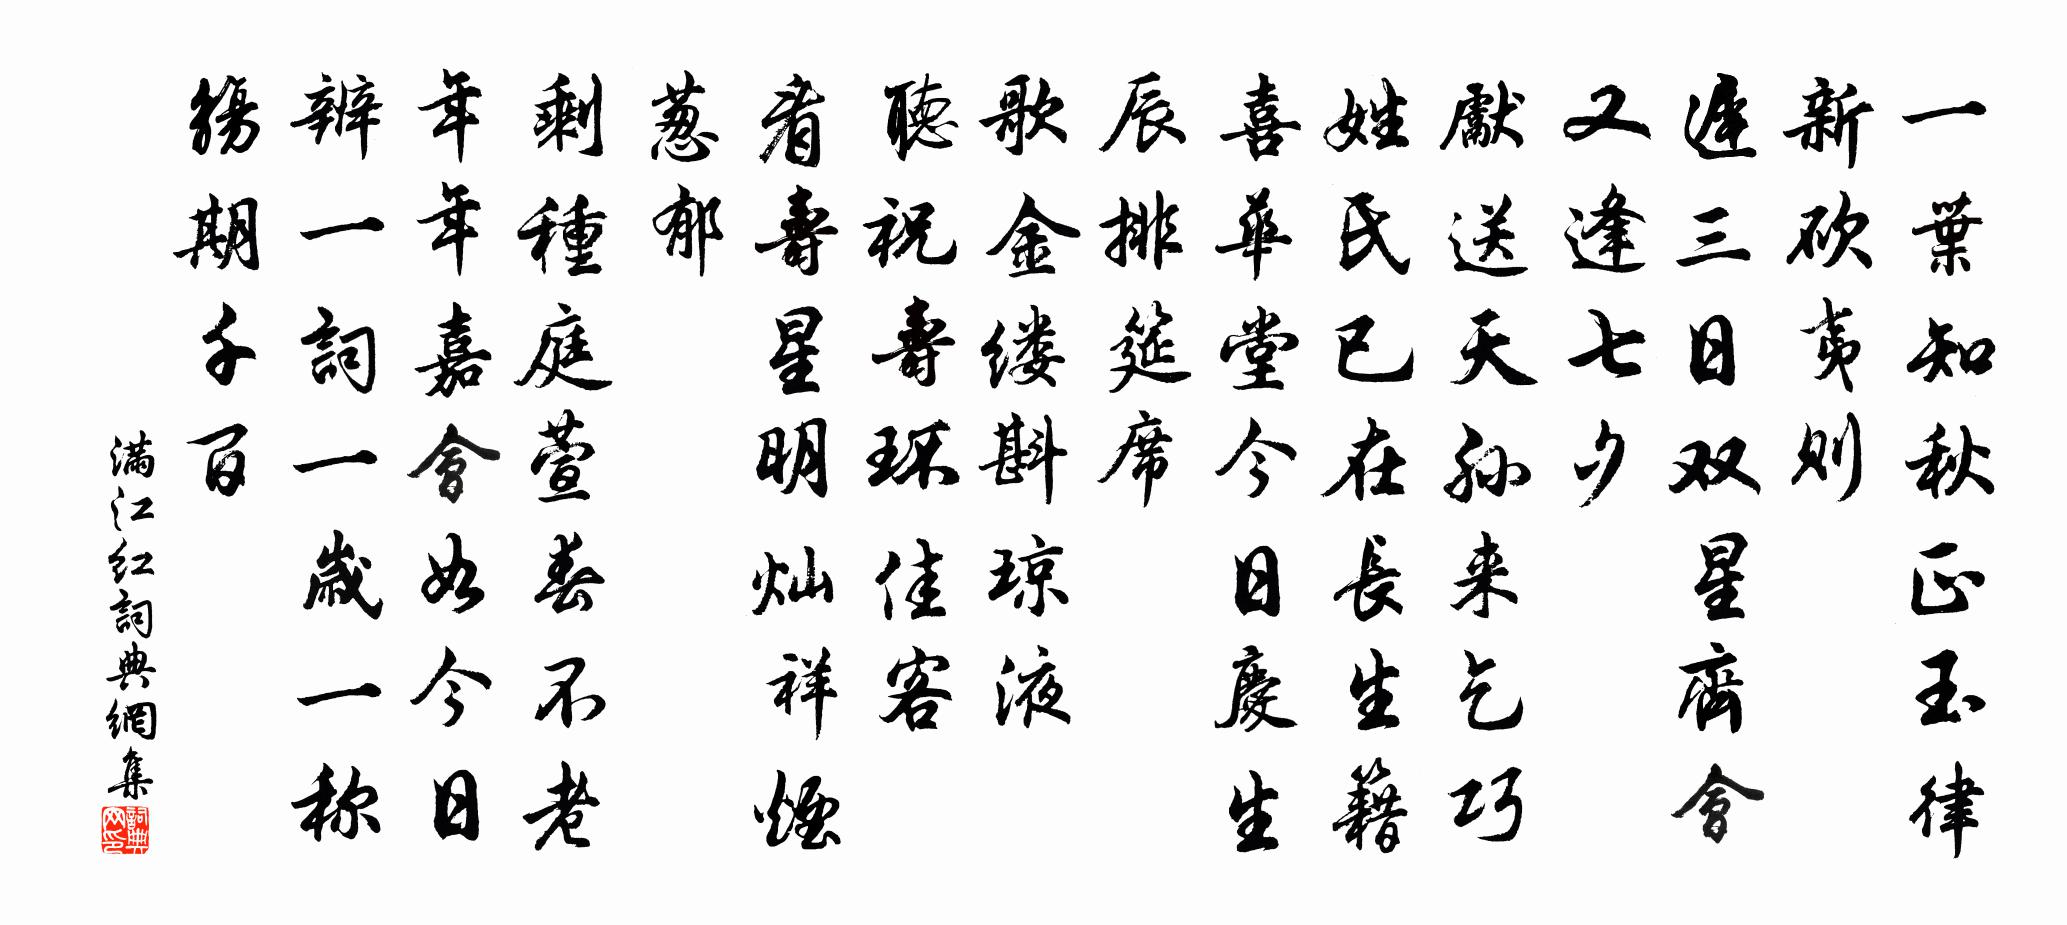 一葉知秋正玉律
新砍夷則
遲三日双星齊會
又逢七夕
獻送天孙来乞巧
姓氏已在長生籍
喜華堂今日慶生
辰排筵席
歌金缕斟琼液
聽祝壽环佳客
看壽星明灿祥煙
葱郁
剩種庭萱春不老
年年嘉會如今日
辦一詞一歲一称
觴期千百
满江红詞典網集
詞典网印